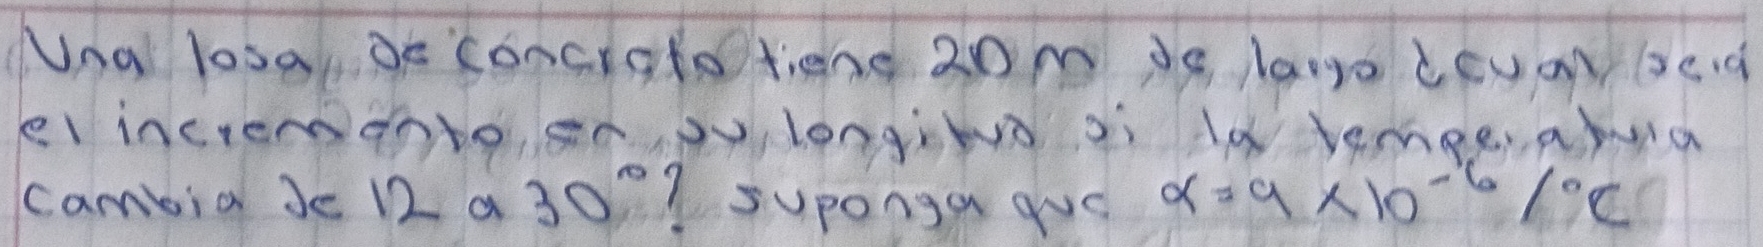 Una losa de concreto tiene 20 m de largo ¿cual será
el incremento, en su longitud si la temperatura
cambia de 12 a 30°? suponga que α = 9 x 10⁻⁶ /°C